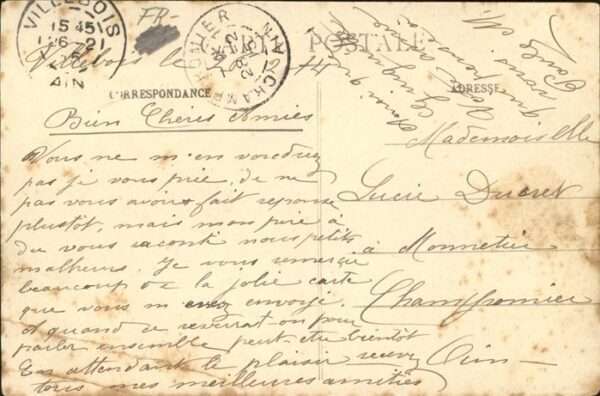 VILLEBOIS
15 45
26 - 2
AIN
FR-
CHAMPFROMIER
AIN
CARTE POSTALE
Villebois le
CORRESPONDANCE
ADRESSE
Bien Chères Amies
Vous ne m'en voudrez
pas je vous prie, de ne
pas vous avoir fait reponse
plustôt, mais mon père à
du vous raconté nous petits
malheurs. Je vous remercie
beaucoup de la jolie carte
que vous m'avez envoyé.
et quand se reverrat-on pour
parler ensemble peut-être bientôt
En attendant le plaisir recevez
tous mes meilleures amitiés
Mademoiselle
Lucie Ducret
à Monnetier
Champfromier
Ain